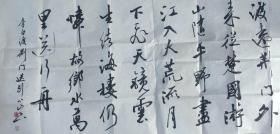 渡遠荆門外
来從楚國遊
山随平野盡
江入大荒流月
下飛天鏡雲
生結海樓仍
憐故鄉水萬
里送行舟
李白渡荆門送别